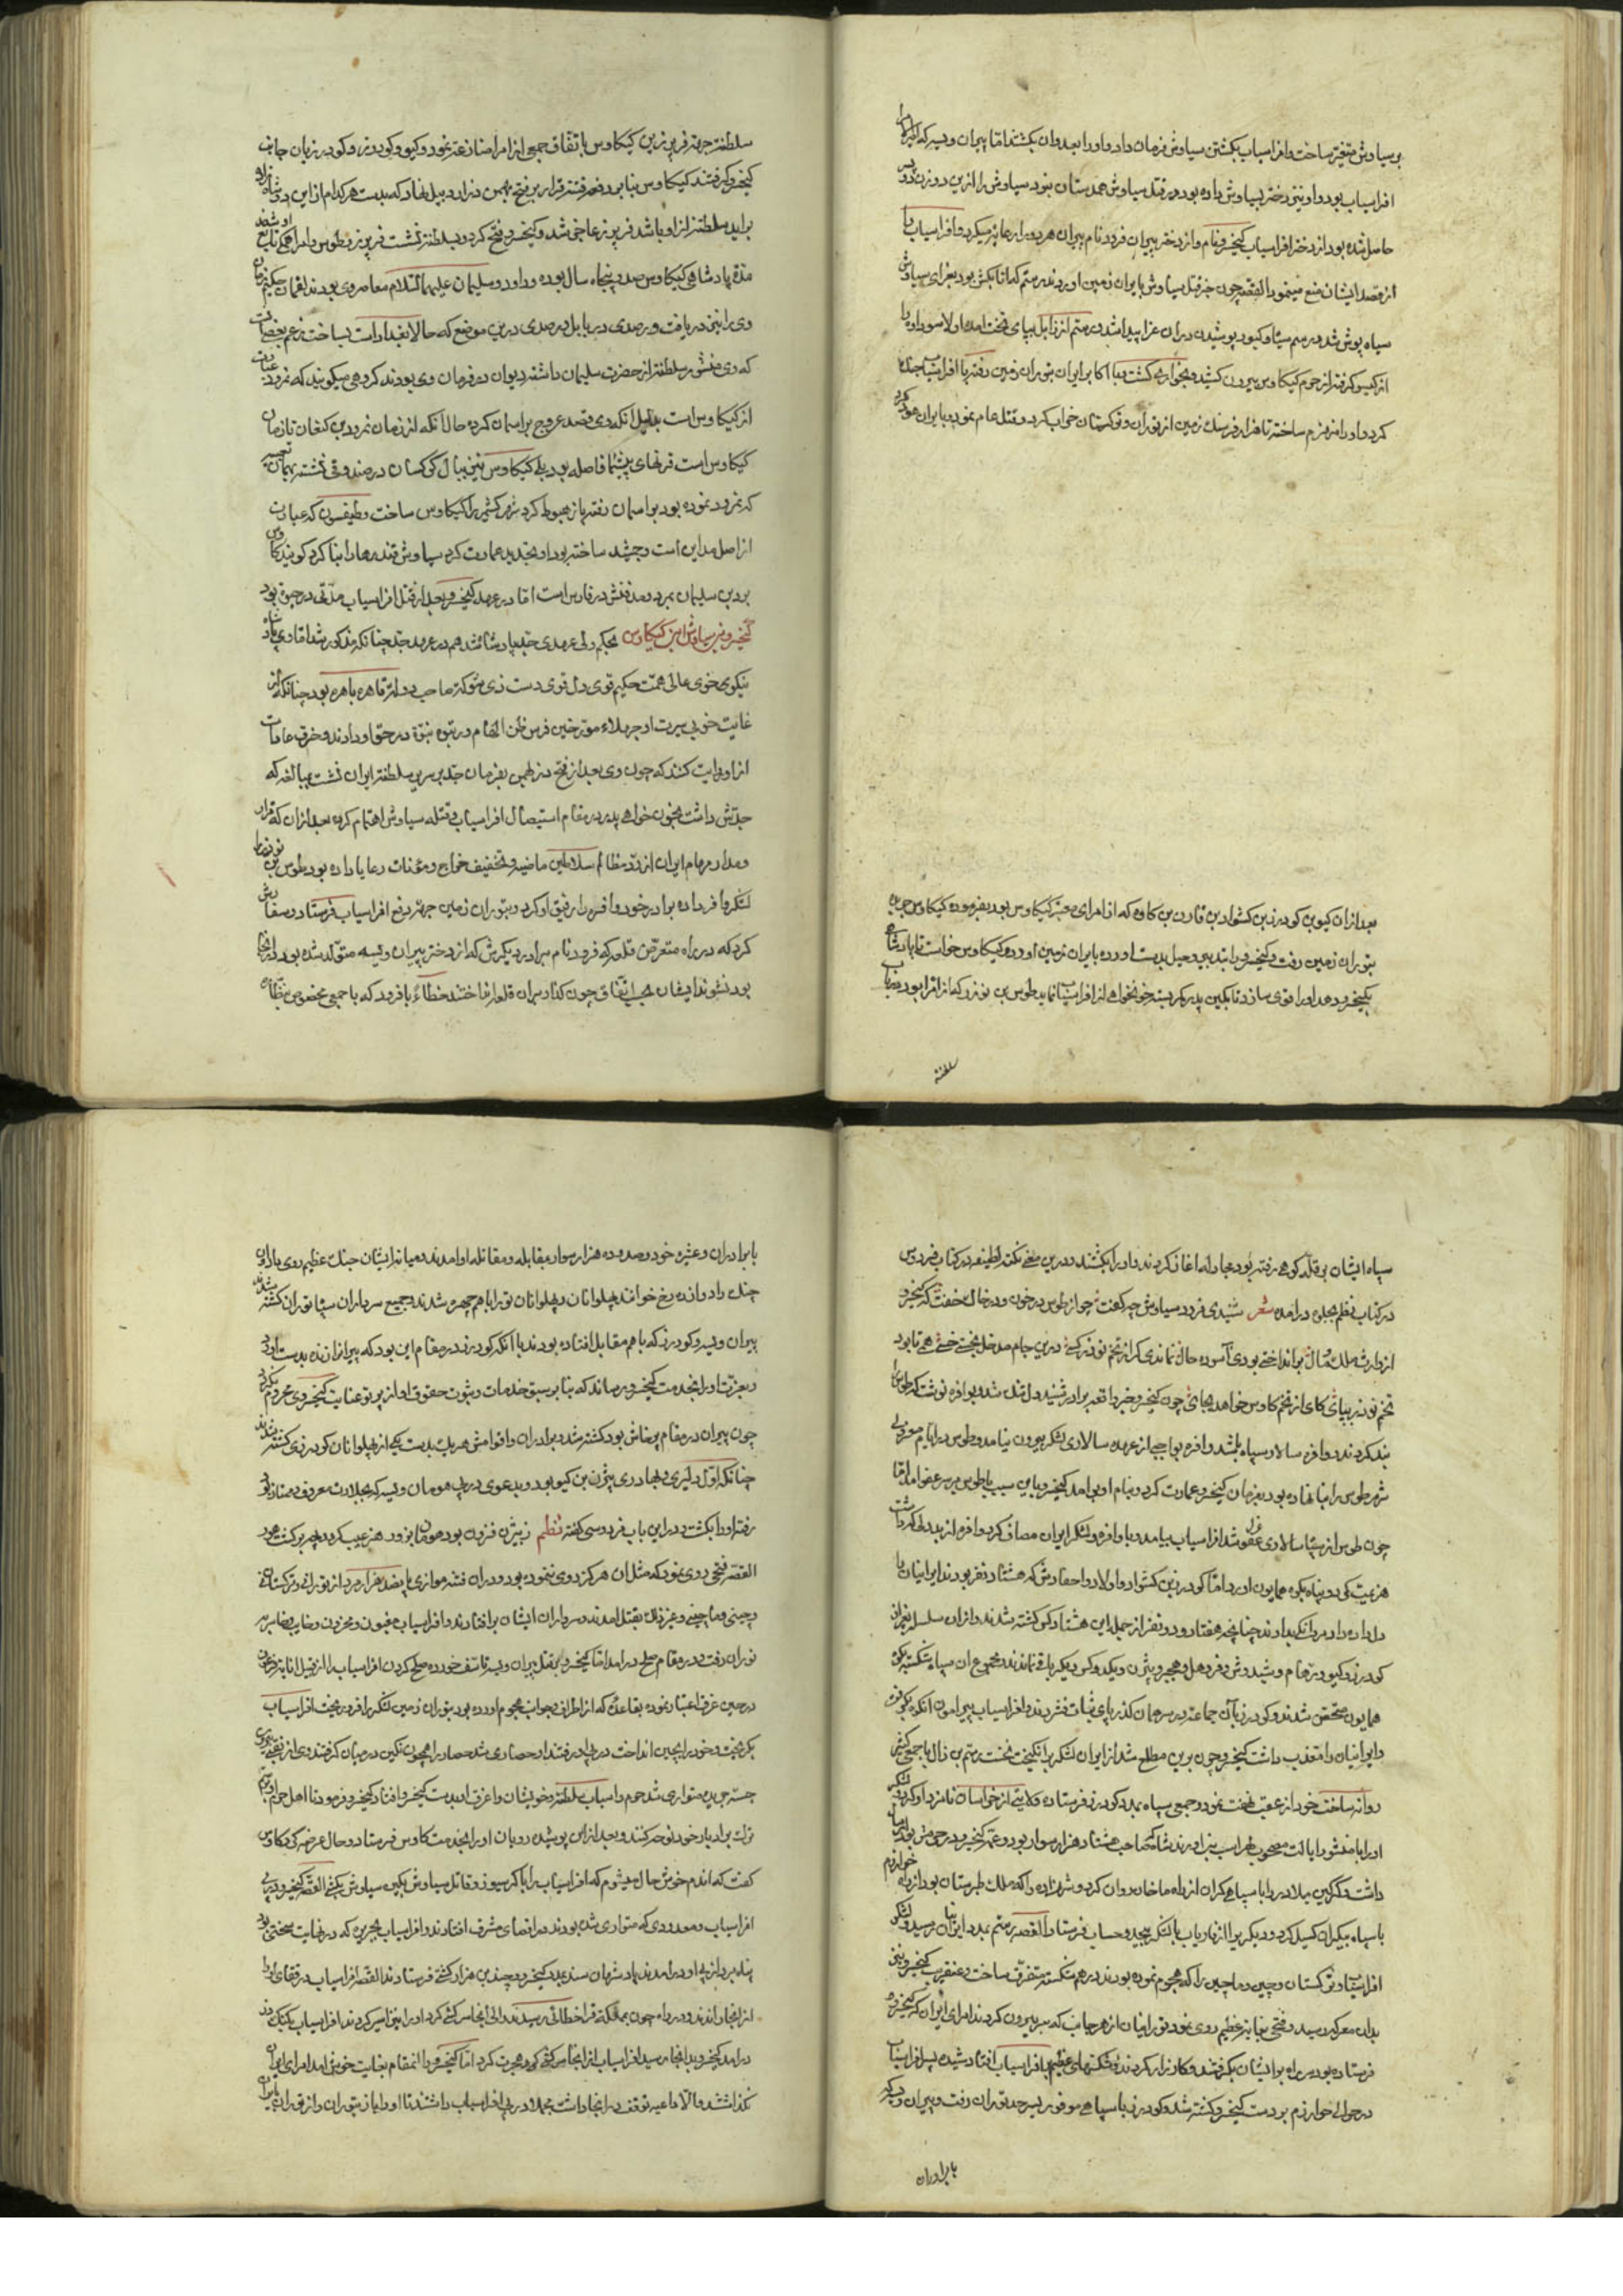 بر سیاوش متغیر ساخت و افراسیاب بکشتن سیاوش فرمان داد و او را بعدوان بکشتند اما پیران ویسه که
افراسیاب بود و او نیز دختر بسیاوش داده بود در قتل سیاوش همدستان نبود سیاوش را ازین دو زن دو پسر
حاصل شده بود از دختر افراسیاب کیخسرو نام و از دختر پیران فرود نام پیران هر دو را رعایتها میکرد و افراسیاب را
از قصد ایشان منع مینمود القصه چون خبر قتل سیاوش بایران زمین اوردند رستم که اتابکش بود بعزای سیاوش
سیاه پوش شد و رسم سیاه و کبود پوشیدن در ان عزا پیدا شد و رستم از زابل بپای تخت امد اولا سودابه را
از کیسو کرفته از حرم کیکاوس بیرون کشید و بخواری بکشت و با اکابر ایران بتوران زمین رفته با افراسیاب جنکها
کرد و او را منهزم ساخته تا هزار فرسنک زمین از توران و ترکستان خراب کرد و قتل عام نمود و بایران عود کرد
بعد از ان کیو بن کودرز بن کشواد بن قارن بن کاوه که از امرای معتبر کیکاوس بود بفرموده کیکاوس جریده
بتوران زمین رفت و کیخسرو را بتدبیر و حیل بدست اورده بایران زمین اورد و کیکاوس خواست تا پادشاهی
بکیخسرو دهد و او را قوی سازد تا بکین پدر کمر بسته خونخواهی از افراسیاب نماید طوس بن نوذر که از اقرا بود
سلطنة
سلطنة جهة فریبرز بن کیکاوس با تفاق جمعی از امرا منازعه نمود و کیو و کودرز و کودرزیان جانب
کیخسرو کرفتند کیکاوس بنا بر دفع فتنه قرار بر فتح بهمن دز اردبیل نهاد که بدست هر کدام از این دو شاهزاده
براید سلطنة از او باشد فریبرز عاجز شد و کیخسرو فتح کرد و بسلطنة نشست فریبرز و طوس و امرا همه تابع او شدند
مدة پادشاهی کیکاوس صد و پنجاه سال بوده و داود و سلیمان علیهما السلام معاصر وی بودند لقمان حکیم زمان
وی را نیز دریافت و رصدی در بابل و رصدی درین موضع که حالا بغداد است بساخت بزعم بعضی
که وی منشور سلطنة از حضرت سلیمان داشته دیوان در فرمان وی بودند کروهی میکویند که نمرود عبارت
از کیکاوس است بدلیل انکه وی قصد عروج بر اسمان کرد حال آنکه از زمان نمرود بن کنعان تا زمان
کیکاوس است قرنهای بیشمار فاصله بود بلی کیکاوس نیز ببال کرکسان در صندوقی نشسته بهمان
که نمرود نموده بود بر اسمان رفته باز هبوط کرد شهر کشمیر را کیکاوس ساخت و طیفسون که عبارت
از اصل مداین است و جمشید ساخته بود او بتجدید عمارت کرد سیاوش قندهار را بنا کرد کویند کاوس
بر دین سلیمان بمرد و مدفنش در فارس است اما در عهد کیخسرو بعد از قتل افراسیاب مدتی در حیوة بود
کیخسرو بن سیاوش ابن کیکاوس بحکم ولی عهدی جد پادشاه شد هم در عهد جد چنانکه مذکور شد اما وی پادشاه
نیکوی خوی عالی همت حکیم قوی دل قوی دست ذی شوکة صاحب دولة قاهره باهره بود چنانکه از
غایت خوبی سیرت او جهلاء مورخین فرس ظن الهام و رتبه نبوة در حق او دارند و خرق عادات
از او روایت کنند که چون وی بعد از فتح دز بهمن بفرمان جد بر سریر سلطنة ایران نشست بمبالغه که
جدش داشت بخون خواهی پدر در مقام استیصال افراسیاب و قتله سیاوش اهتمام کرد و بعد از ان که قرار
و مدار مهام ایران از رد مظالم سلاطین ماضیه و تخفیف خراج و مؤنات رعایا داده بود طوس بن نوذر را
لشکرها فر داده برادر خود وافره را رفیق او کرد و بتوران زمین جهة دفع افراسیاب فرستاد و سفارش
کرد که در راه متعرض قلعه که فرود نام برادر دیکرش که از دختر پیران ویسه متولد شده بود در انجا
بود نشوند ایشان بحسب اتفاق چون کذار بران قلعه انداختند خطاءً با فرود که با جمعی مخصوص نظاره
سپاه ایشان بر قله کوهی رفته بود مجادله اغاز کردند و او را بکشتند و درین معنی نکته لطیفه در کتاب فردوس
در کتاب نظم بجلوه درامده شعر شنیدی فرود سیاوش چه کفت چو از طوس در خون و در خاک خفت که کیخسرو
از وارث ملک و مال برانداختی بودی آسوده حال نماندی کر از تخم نوذر کسی درین جام مدخل نجستی خسی همی تا بود
تخم نوذر بپای کای از تخم کاوس خواهد بجای چون کیخسرو خبر واقعه برادر شنید دل تنک شد و بوافره نوشت که طوس
بند کردند و وافره سالار سپاه باشد وافره بواجبی از عهده سالاری لشکر بیرون نیامد و طوس در ایام معزولی
شهر طوس را بنا نهاده بود بفرمان کیخسرو عمارت کرد و بنام او برامد کیخسرو باین سبب باطوس بر سر عفو امد اما
چون طوس از سپاه سالاری عزل شد افراسیاب بیامد و با وافره و لشکر ایران مصاف کرد وافره از بددلی که داشت
هزیمت کرد و پناه بکوه همایون اورد اما کودرز بن کشواد و اولاد و احفادش که هشتاد نفر بودند ایرانیان را
دل داده داد مردانکی بدادند چنانچه هفتاد و دو نفر از جمله این هشتاد کس کشته شدند و از ان سلسله بغیر از
کودرز و کیو و رهام و شیدوش و فرهل و هجیر و بیژن و یکدو کس دیکر باقی نماندند مجموع ان سپاه شکسته بکوه
همایون متحصن شدند و کودرز با آن جماعة در سر همان کذر پای ثبات فشردند و افراسیاب پیرامون انکوه بکرفت
و ایرانیان را معذب داشت کیخسرو چون برین مطلع شد از ایران لشکر برانکیخت نخست رستم بن زال با جمعی
روانه ساخت خود از عقب نهضت نمود و جمعی سپاه بمدد کودرز فرستاده ولایتی از خراسان نامزد او کرد
او را با منشور ایالت مصحوب لهراسب بنزد اوردند شاه که صاحب هشتاد هزار سوار بود و عم کیخسرو در حرمش بود
داشت و کرکین میلاد را با سپاهی کران از راه ماخان روان کرد و شهزاده را که ملک طبرستان بود از راه خوارزم
با سپاه بیکران کسیل کرد و دیکری را از فاریاب با لشکر بیحد و حساب فرستاد القصه رستم بمدد ایرانیان رسید و لشکر
افراسیاب و ترکستان و چین و ماچین را که هجوم نموده بودند در هم شکسته متفرق ساخت و عنقریب کیخسرو نیز
بدان معرکه رسید و فتحی بغایة عظیم روی نمود تورانیان از هر جانب که سر بیرون کردند امرای ایران که کیخسرو
فرستاده بود سر راه بر ایشان بکرفتند و کارزار کردند و شکستهای عظیم بافراسیاب افتاد شیده پسر افراسیاب
در حوالی خوارزم بر دست کیخسرو کشته شد و کودرز با سپاهی موفور بسرحد توران رفت و پیران ویسه
با برادران
با برادران و عشیره خود و صد و ده هزار سوار بمقابله و مقاتله او امدند و میانه ایشان جنک عظیم روی داد و ان
جنک را دوازده رخ خوانند پهلوانان و پهلوانان توران با هم چهره شدند و جمیع سرداران سپاه توران کشته شدند
پیران ویسه و کودرز که با هم مقابل افتاده بودند با انکه کودرز در مقام این بود که پیران را زنده بدست اورد
و بعزت او را بخدمت کیخسرو رساند که بنا بر سبق خدمات و ثبوت حقوق او از پرتو عنایت کیخسروی محروم نکردد
چون پیران در مقام پرخاش بود کشته شد و برادران و اقوامش هر یک بدست یکی از پهلوانان کودرزی کشته شدند
چنانکه اول دلیری و بهادری بیژن بن کیو بود و بدعوی در پی هومان ویسه که بجلادت معروف و ممتاز بود
رفته او را بکشت و در این باب فردوسی کفته نظم ز بیژن فزون بود هومان بزور هنر عیب کردد چو برکشت هور
القصه فتحی روی نمود که مثل ان هرکز روی ننموده بود و دران فتنه موازی پانصد هزار مرد از تورانی و ترکستانی
و چینی و ماچینی و غیر ذلک بقتل امدند و سرداران ایشان برافتادند و افراسیاب مغبون و محزون و خایب و خاسر به
توران رفت و در مقام صلح درامد اما کیخسرو بر قتل پیران ویسه تاسف خورده صلح کردن افراسیاب را از قبیل انابة فرعون
در حین غرق اعتبار نموده بقاعده که از اطراف و جوانب هجوم اورده بود بتوران زمین لشکر برافروریخت افراسیاب
بکریخت و خود را بچین انداخت در پی او رفتند او حصاری شد حصار را همچون نکین در میان کرفتند وی از نقبی بیرون
جسته جریده متواری شد حرم و اسباب سلطنة و خویشان و اعزه او بدست کیخسرو افتاد کیخسرو فرمود تا اهل حرم او بزبان
ترک برادبار خود نوحه کنند و بعد از این پوشیده رویان او را بخدمت کاوس فرستاد و حال عرضه کرد کاوس
کفت که اندم خوش حال میشوم که افراسیاب را با کرسیوز و قاتل سیاوش بکین سیاوش بکشی القصه کیخسرو در پی
افراسیاب و معدودی که متواری شده بودند در اقصای مشرق افتادند و افراسیاب بجزیره که در نهایت سختی بود
پناه برد از پی او درامدند پادشهان سند بمدد کیخسرو چندین هزار کشتی فرستادند القصه افراسیاب و رفقای او را
از انجا راندند و در راه چون بمملکة قراخطائی رسیدند والی انجا سرکشی کرد او را نیز اسیر کردند افراسیاب بکنک دز
درامد کیخسرو بد انجا رسید افراسیاب از انجا سرکشی کرد و هجرت کرد اما کیخسرو را انمقام بغایت خوش امد امرای ایران
نکذاشتند والا داعیه توقف در انجا داشت مجملا در پی افراسیاب داشتند تا او را باز بتوران و از توران بایران